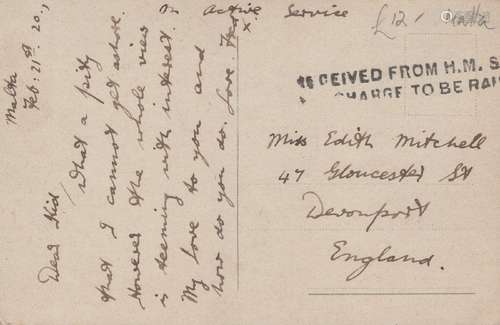 On Active Service
£12/ Malta
Malta
Feb: 21st. 20.,
Dear Kid,
What a pity
that I cannot get ashore.
However the whole view
is teeming with interest.
My love to you and
how do you do. Love.
x
CEIVED FROM H.M. S
CHARGE TO BE RAI
Miss Edith Mitchell
47 Gloucester St
Devonport
England.